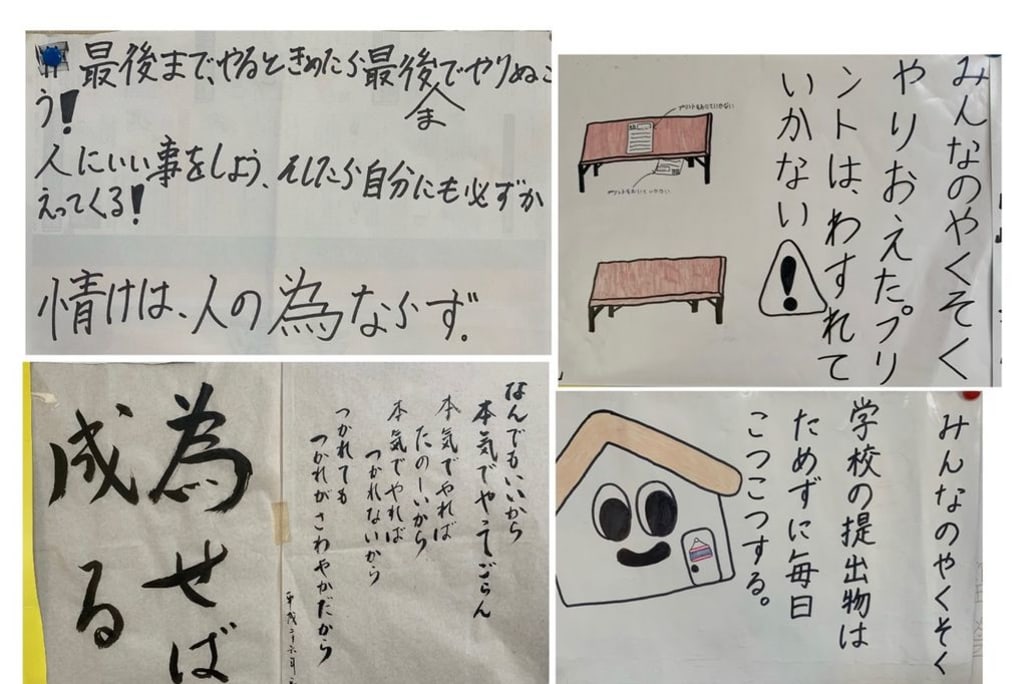 最後まで、やるときめたら最後までやりぬこ
う!
人にいい事をしよう、そしたら自分にも必ずか
えってくる!
情けは、人の為ならず。
みんなのやくそく
やりおえたプリ
ントは、わすれて
いかない
なんでもいいから
本気でやってごらん
本気でやれば
たのしいから
本気でやれば
つかれないから
つかれても
つかれがさわやかだから
平成二十六年
為せば
成る
みんなのやくそく
学校の提出物は
ためずに毎日
こつこつする。